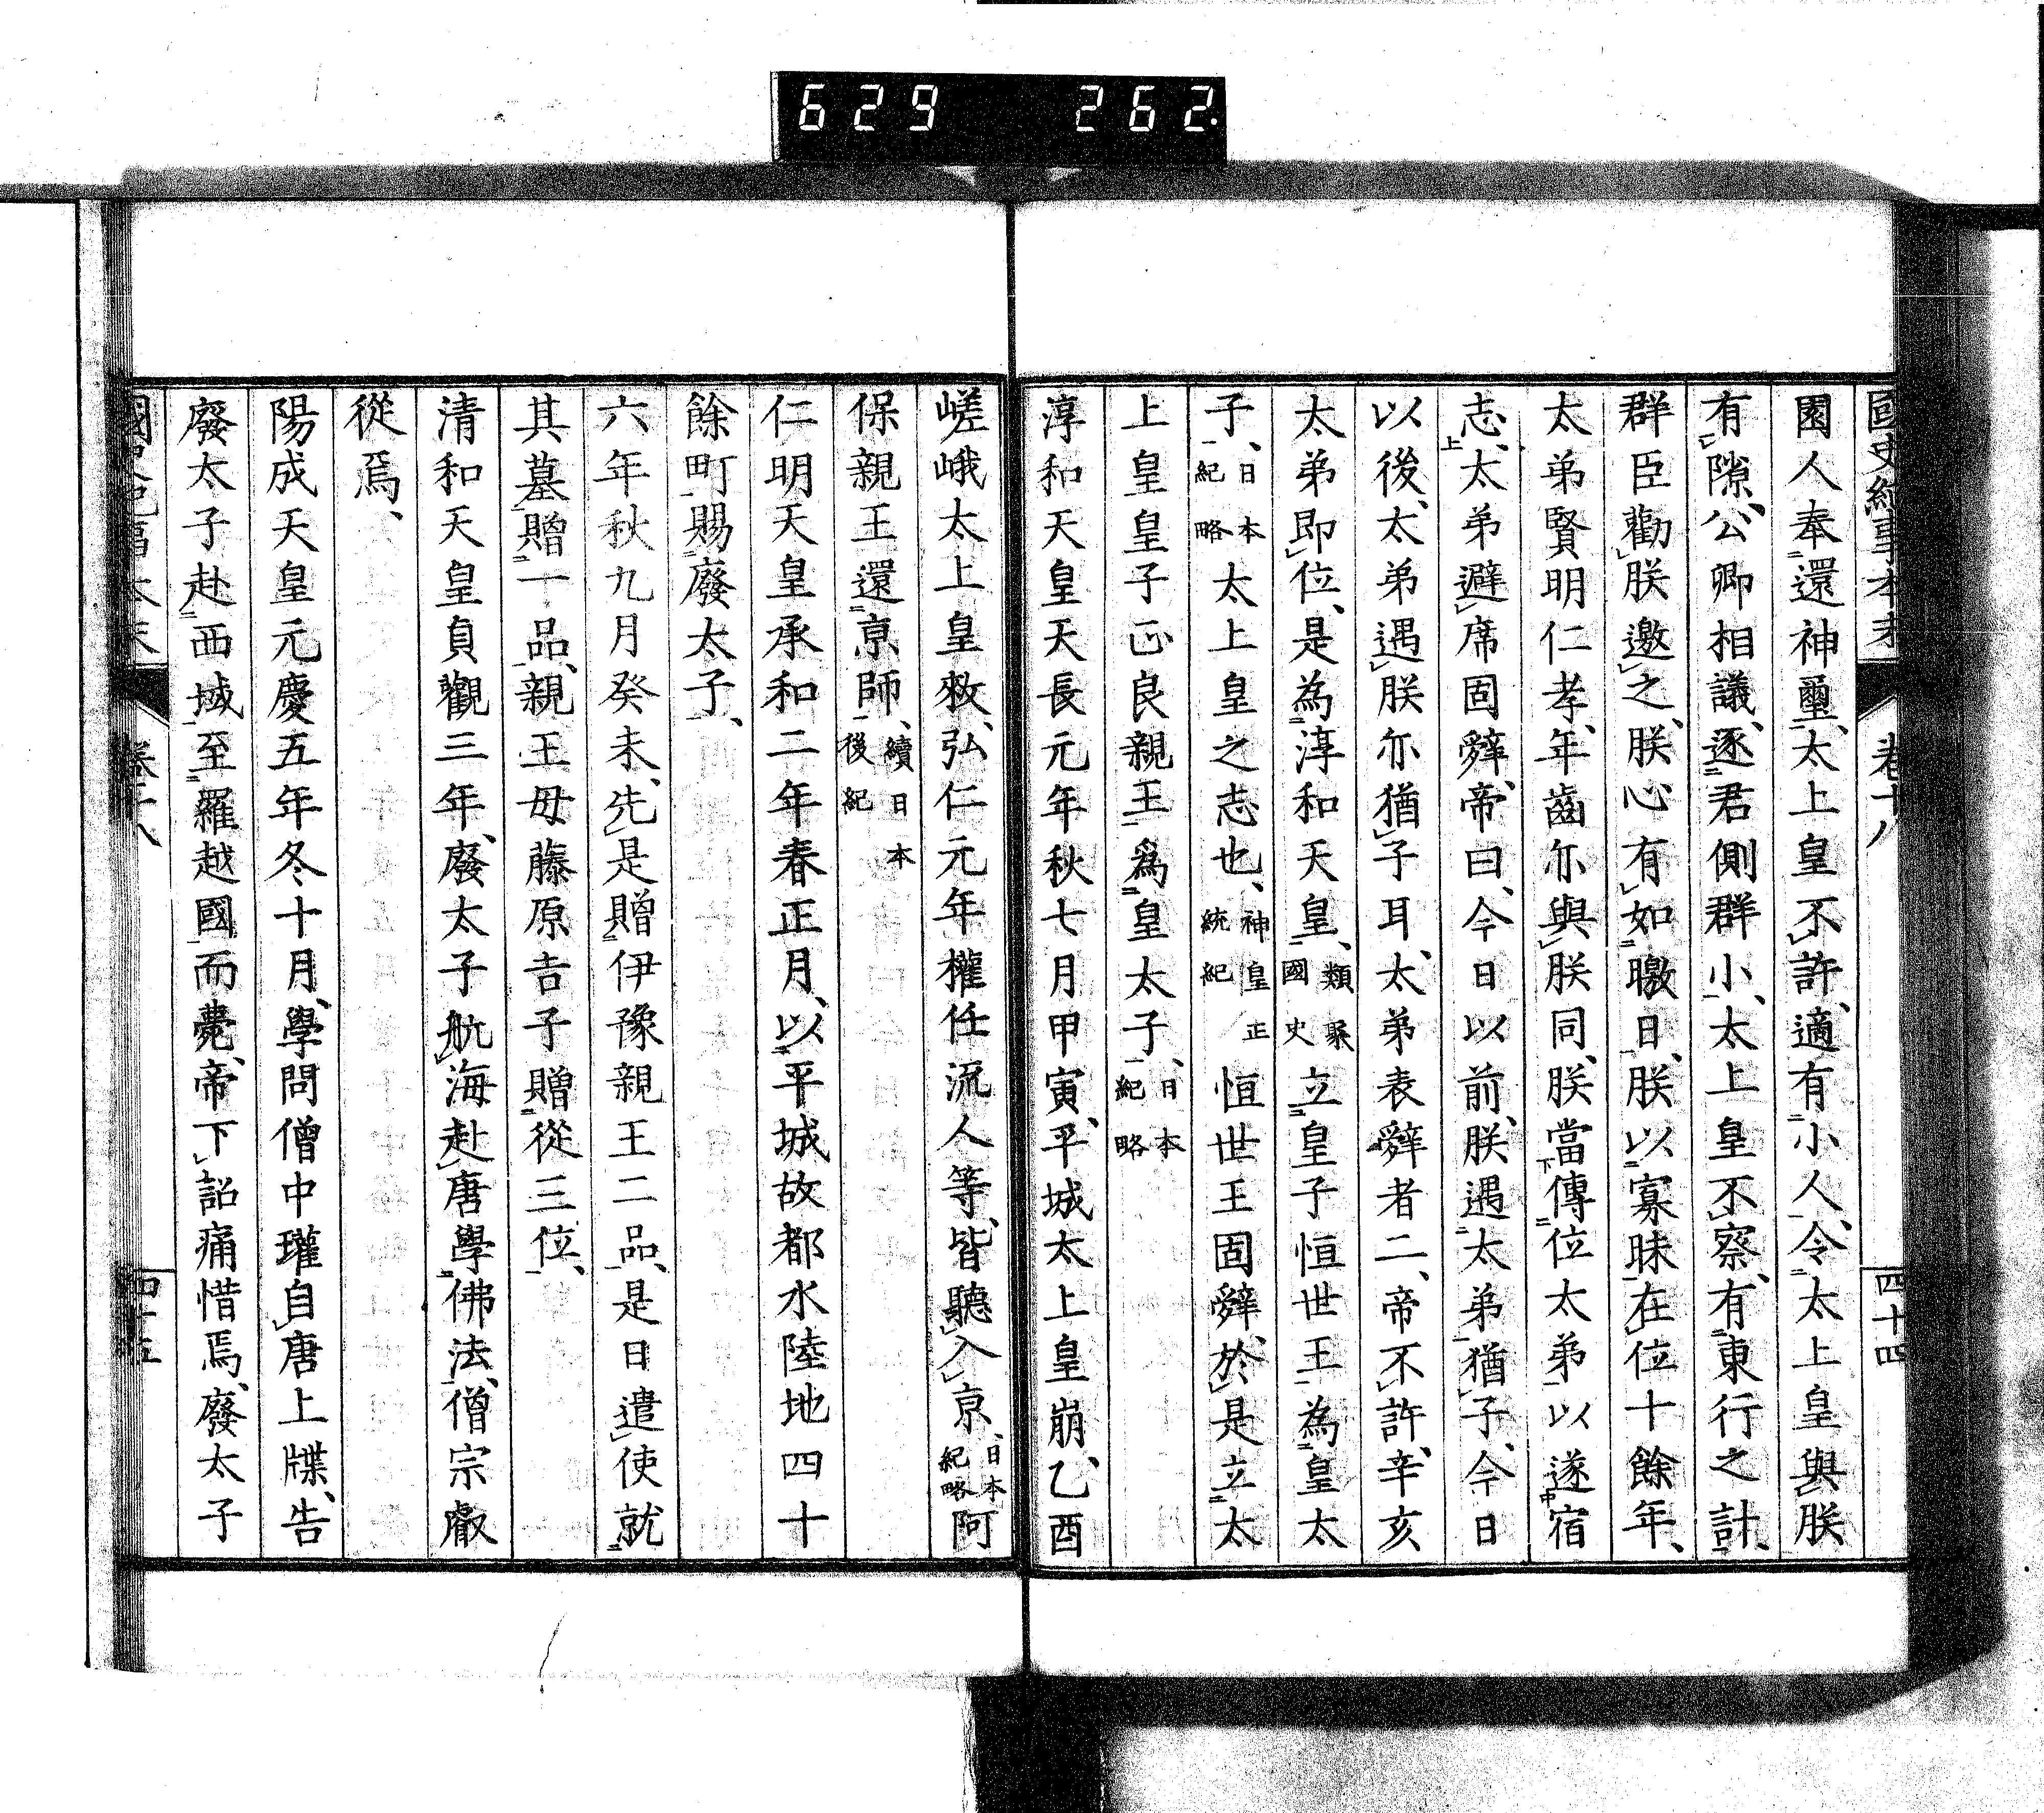 629 262.
國史紀事本末 卷十八 四十四
園人奉還神璽、太上皇不許、適有小人、令太上皇與朕
有隙、公卿相議、逐君側群小、太上皇不察、有東行之計、
群臣勸朕邀之、朕心有如曒日、朕以寡昧在位十餘年、
太弟賢明仁孝、年齒尓與朕同、朕當傳位太弟以遂宿
志、太弟避席固辤、帝曰、今日以前、朕遇太弟猶子、今日
以後、太弟遇朕尓猶子耳、太弟表辤者二、帝不許、辛亥
太弟即位、是為淳和天皇、類聚國史立皇子恒世王為皇太
子、日本紀略太上皇之志也、神皇正統紀恒世王固辤、於是立太
上皇皇子正良親王爲皇太子、日本紀略
淳和天皇天長元年秋七月甲寅、平城太上皇崩、乙酉
嵯峨太上皇敕、弘仁元年權任流人等、皆聽入京、日本紀略阿
保親王還京師、續日本後紀
仁明天皇承和二年春正月、以平城故都水陸地四十
餘町賜廢太子、
六年秋九月癸未、先是贈伊豫親王二品、是日遣使就
其墓贈一品、親王母藤原吉子贈從三位、
清和天皇貞觀三年、廢太子航海赴唐學佛法、僧宗叡
從焉、
陽成天皇元慶五年冬十月、學問僧中瓘自唐上牒、告
廢太子赴西域、至羅越國而薨、帝下詔痛惜焉、廢太子
本末 卷十八 四十五